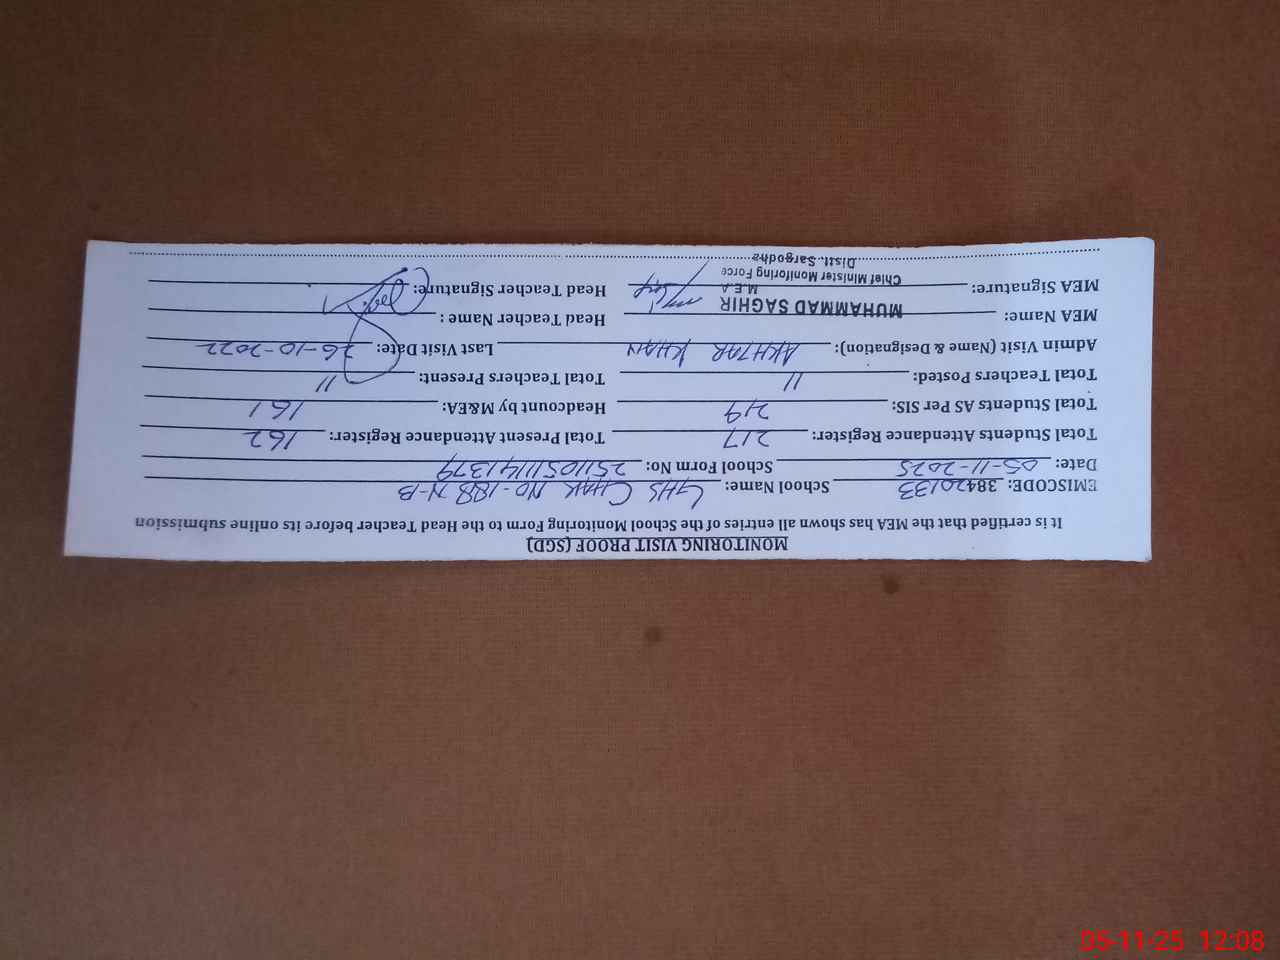 MONITORING VISIT PROOF (SGD)
It is certified that the MEA has shown all entries of the School Monitoring Form to the Head Teacher before its online submission
EMISCODE: 38420133 School Name: GHS CHAK NO-188 N-B
Date: 05-11-2025 School Form No: 2511051141379
Total Students Attendance Register: 217 Total Present Attendant Register: 162
Total Students AS Per SIS: 219 Headcount by M&EA: 161
Total Teachers Posted: 11 Total Teachers Present: 11
Admin Visit (Name & Designation): AKHTAR KHAN Last Visit Date: 26-10-2022
MEA Name: MUHAMMAD SAGHIR Head Teacher Name :
M.E.A
MEA Signature: Head Teacher Signature:
Chief Minister Monitoring Force
Distt. Sargodha
05-11-25 12:08